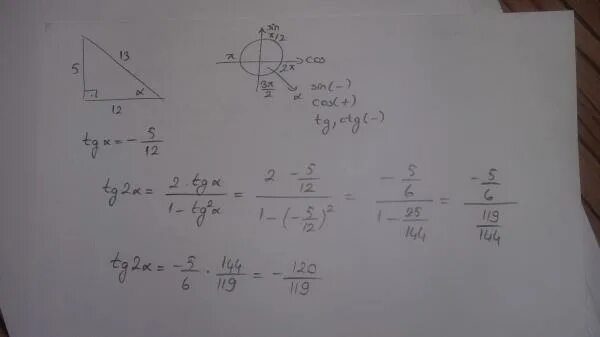 5 13 α 12
sin
π/2
π cos
2π
3π/2 α
sin(-)
cos(+)
tg, ctg(-)
tg α = - 5/12
tg 2α = 2·tg α / 1 - tg²α = 2 - 5/12 / 1 - (- 5/12)² = - 5/6 / 1 - 25/144 = - 5/6 / 119/144
tg 2α = - 5/6 · 144/119 = - 120/119